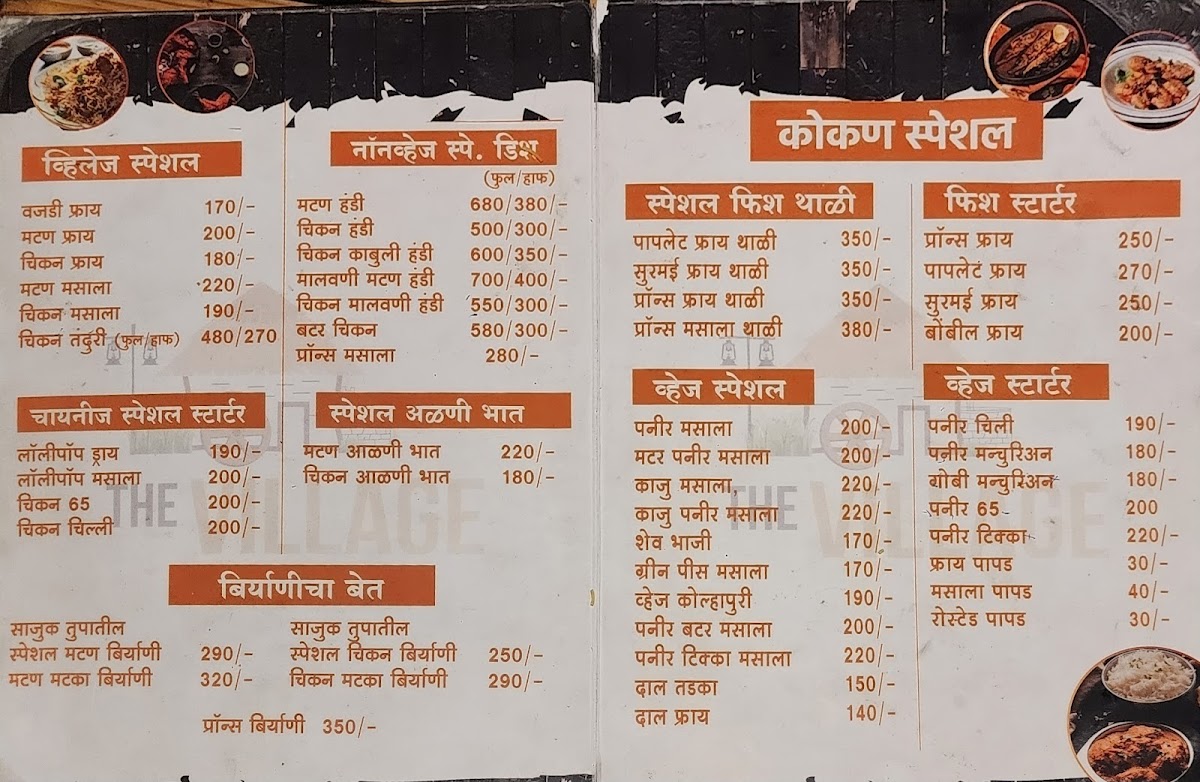 व्हिलेज स्पेशल
वजडी फ्राय 170/-
मटण फ्राय 200/-
चिकन फ्राय 180/-
मटण मसाला 220/-
चिकन मसाला 190/-
चिकन तंदुरी (फुल/हाफ) 480/270
नॉनव्हेज स्पे. डिश
(फुल/हाफ)
मटण हंडी 680/380/-
चिकन हंडी 500/300/-
चिकन काबुली हंडी 600/350/-
मालवणी मटण हंडी 700/400/-
चिकन मालवणी हंडी 550/300/-
बटर चिकन 580/300/-
प्रॉन्स मसाला 280/-
चायनीज स्पेशल स्टार्टर
लॉलीपॉप ड्राय 190/-
लॉलीपॉप मसाला 200/-
चिकन 65 200/-
चिकन चिल्ली 200/-
स्पेशल अळणी भात
मटण आळणी भात 220/-
चिकन आळणी भात 180/-
THE VILLAGE
बिर्याणीचा बेत
साजुक तुपातील
स्पेशल मटण बिर्याणी 290/-
मटण मटका बिर्याणी 320/-
साजुक तुपातील
स्पेशल चिकन बिर्याणी 250/-
चिकन मटका बिर्याणी 290/-
प्रॉन्स बिर्याणी 350/-
कोकण स्पेशल
स्पेशल फिश थाळी
पापलेट फ्राय थाळी 350/-
सुरमई फ्राय थाळी 350/-
प्रॉन्स फ्राय थाळी 350/-
प्रॉन्स मसाला थाळी 380/-
फिश स्टार्टर
प्रॉन्स फ्राय 250/-
पापलेट फ्राय 270/-
सुरमई फ्राय 250/-
बोंबील फ्राय 200/-
व्हेज स्पेशल
पनीर मसाला 200/-
मटर पनीर मसाला 200/-
काजु मसाला 220/-
काजु पनीर मसाला 220/-
शेव भाजी 170/-
ग्रीन पीस मसाला 170/-
व्हेज कोल्हापुरी 190/-
पनीर बटर मसाला 200/-
पनीर टिक्का मसाला 220/-
दाल तडका 150/-
दाल फ्राय 140/-
व्हेज स्टार्टर
पनीर चिली 190/-
पनीर मन्चुरिअन 180/-
गोबी मन्चुरिअन 180/-
पनीर 65 200
पनीर टिक्का 220/-
फ्राय पापड 30/-
मसाला पापड 40/-
रोस्टेड पापड 30/-
THE VILLAGE